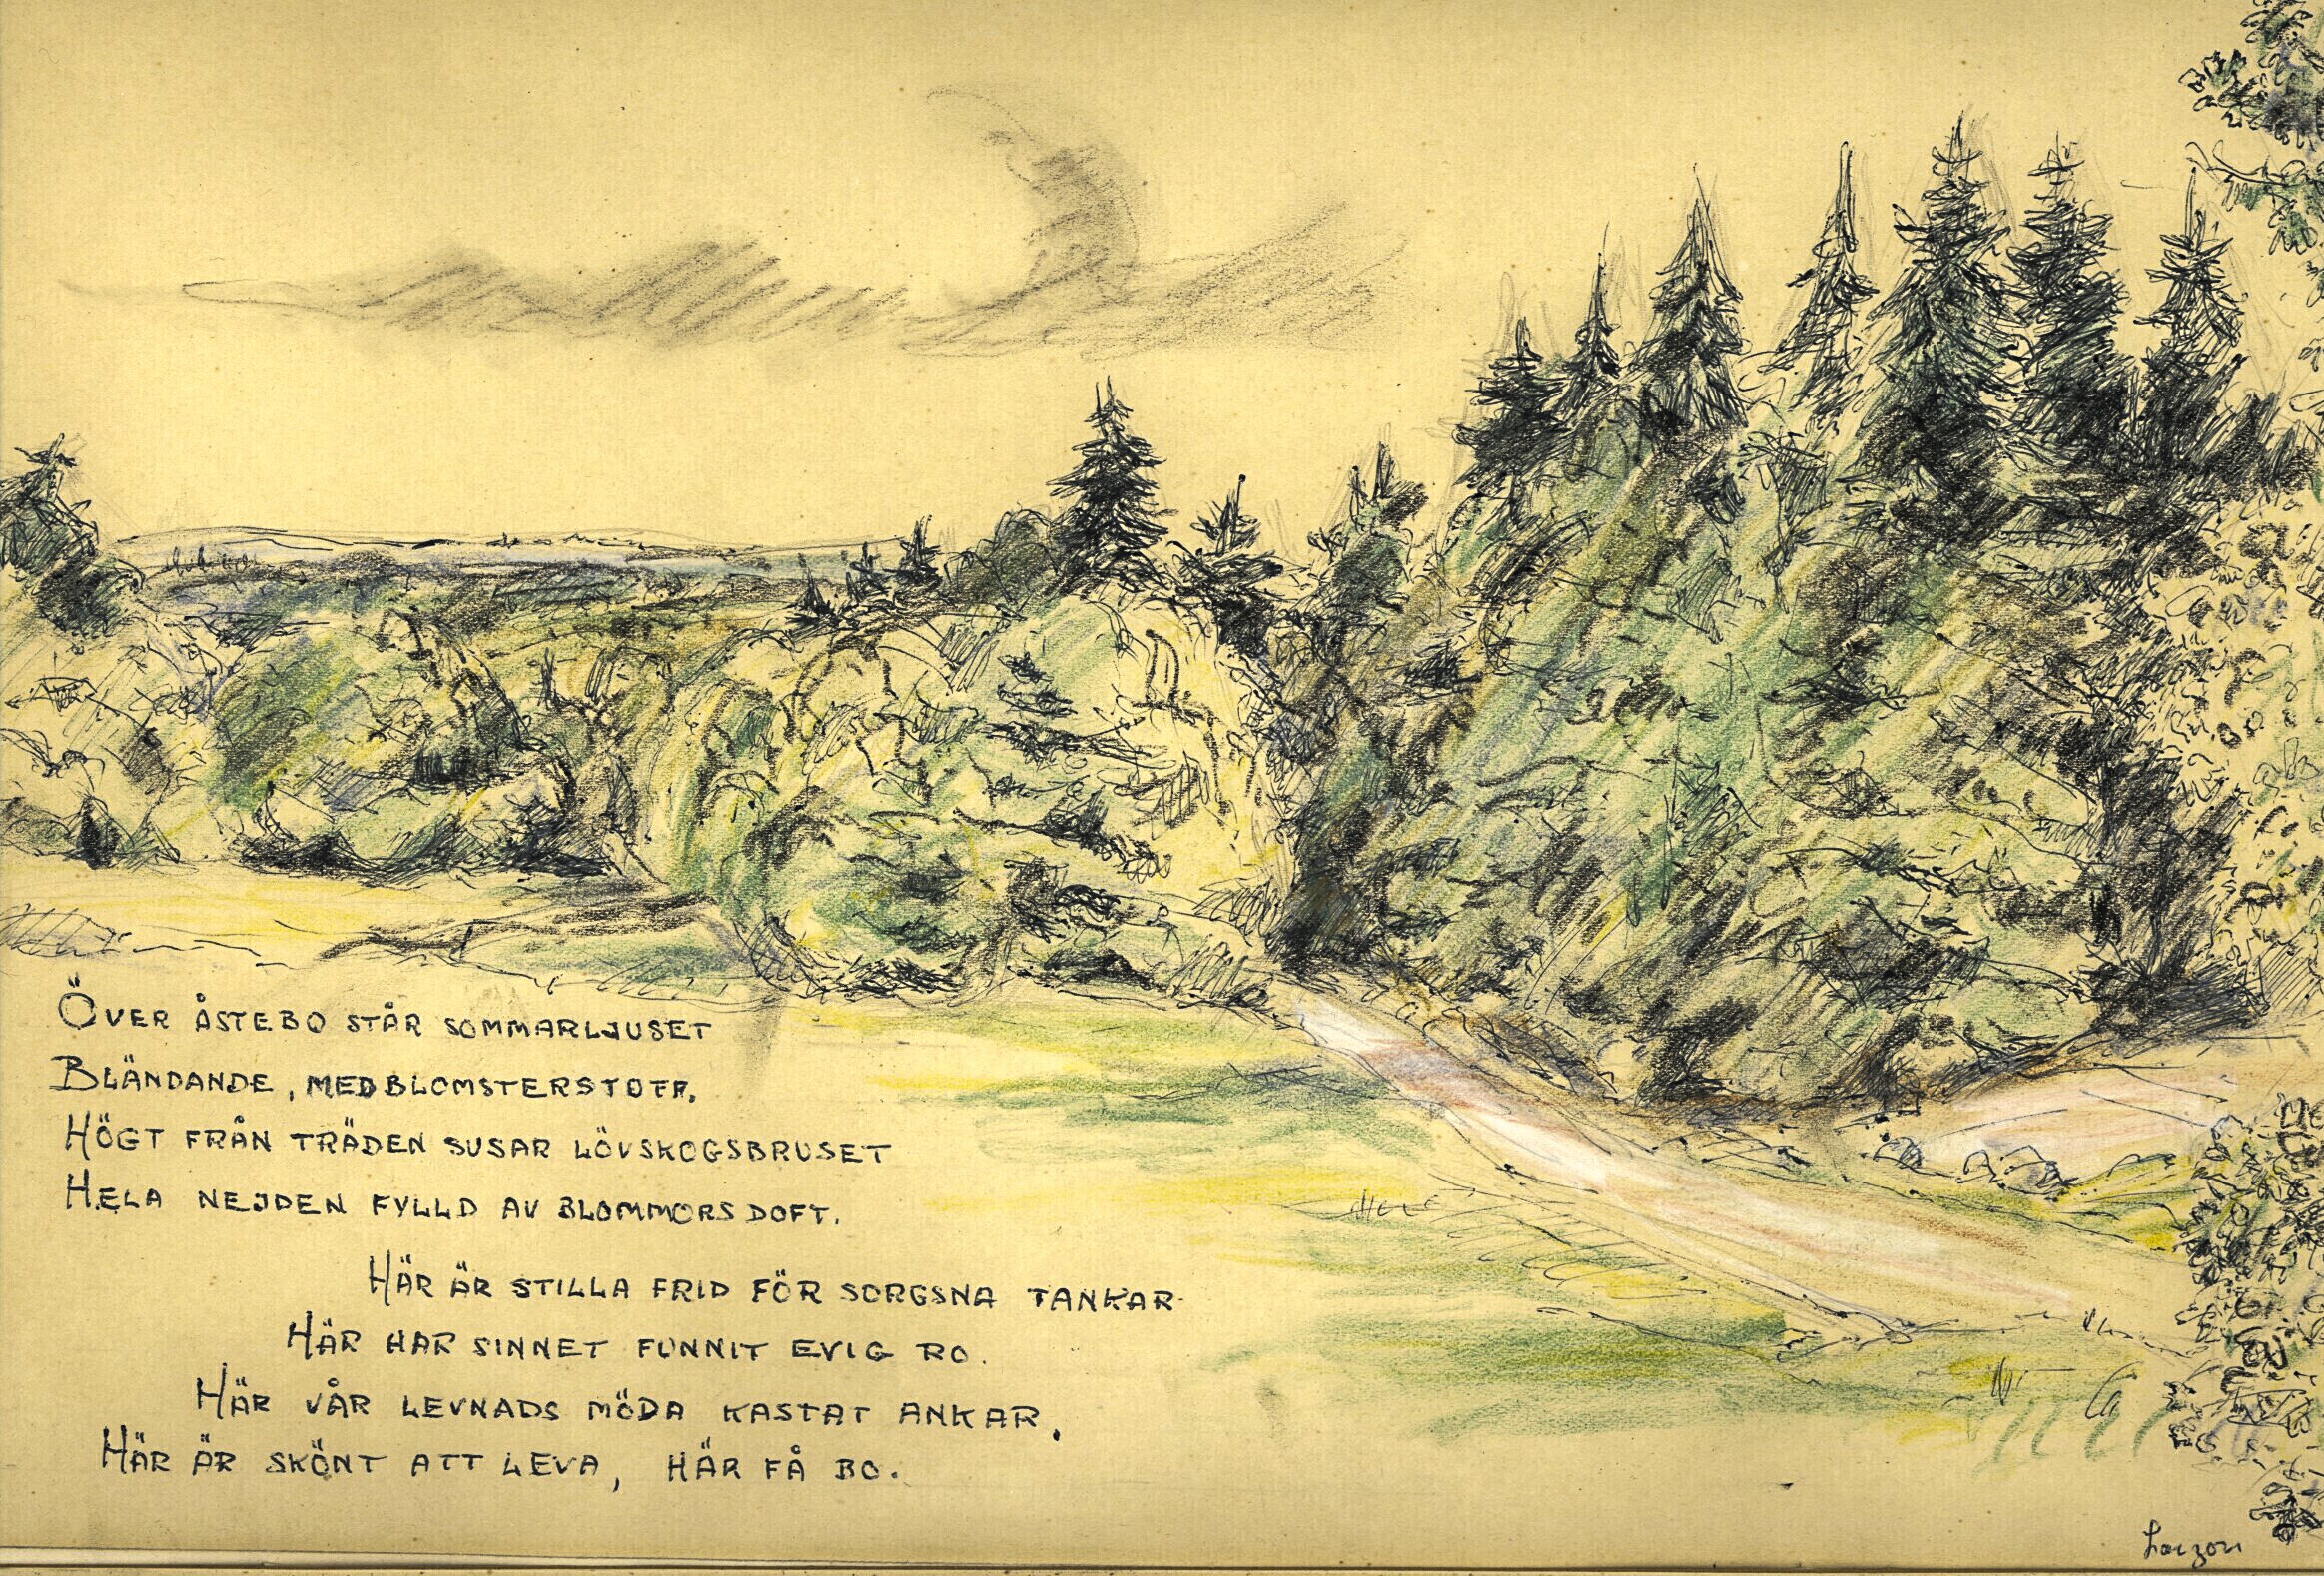 ÖVER ÅSTEBO STÅR SOMMARLJUSET
BLÄNDANDE, MED BLOMSTERSTOFF.
HÖGT FRÅN TRÄDEN SUSAR LÖVSKOGSBRUSET
HELA NEJDEN FYLLD AV BLOMMORS DOFT.
HÄR ÄR STILLA FRID FÖR SORGSNA TANKAR
HÄR HAR SINNET FUNNIT EVIG RO.
HÄR VÅR LEVNADS MÖDA KASTAT ANKAR.
HÄR ÄR SKÖNT ATT LEVA, HÄR FÅ BO.